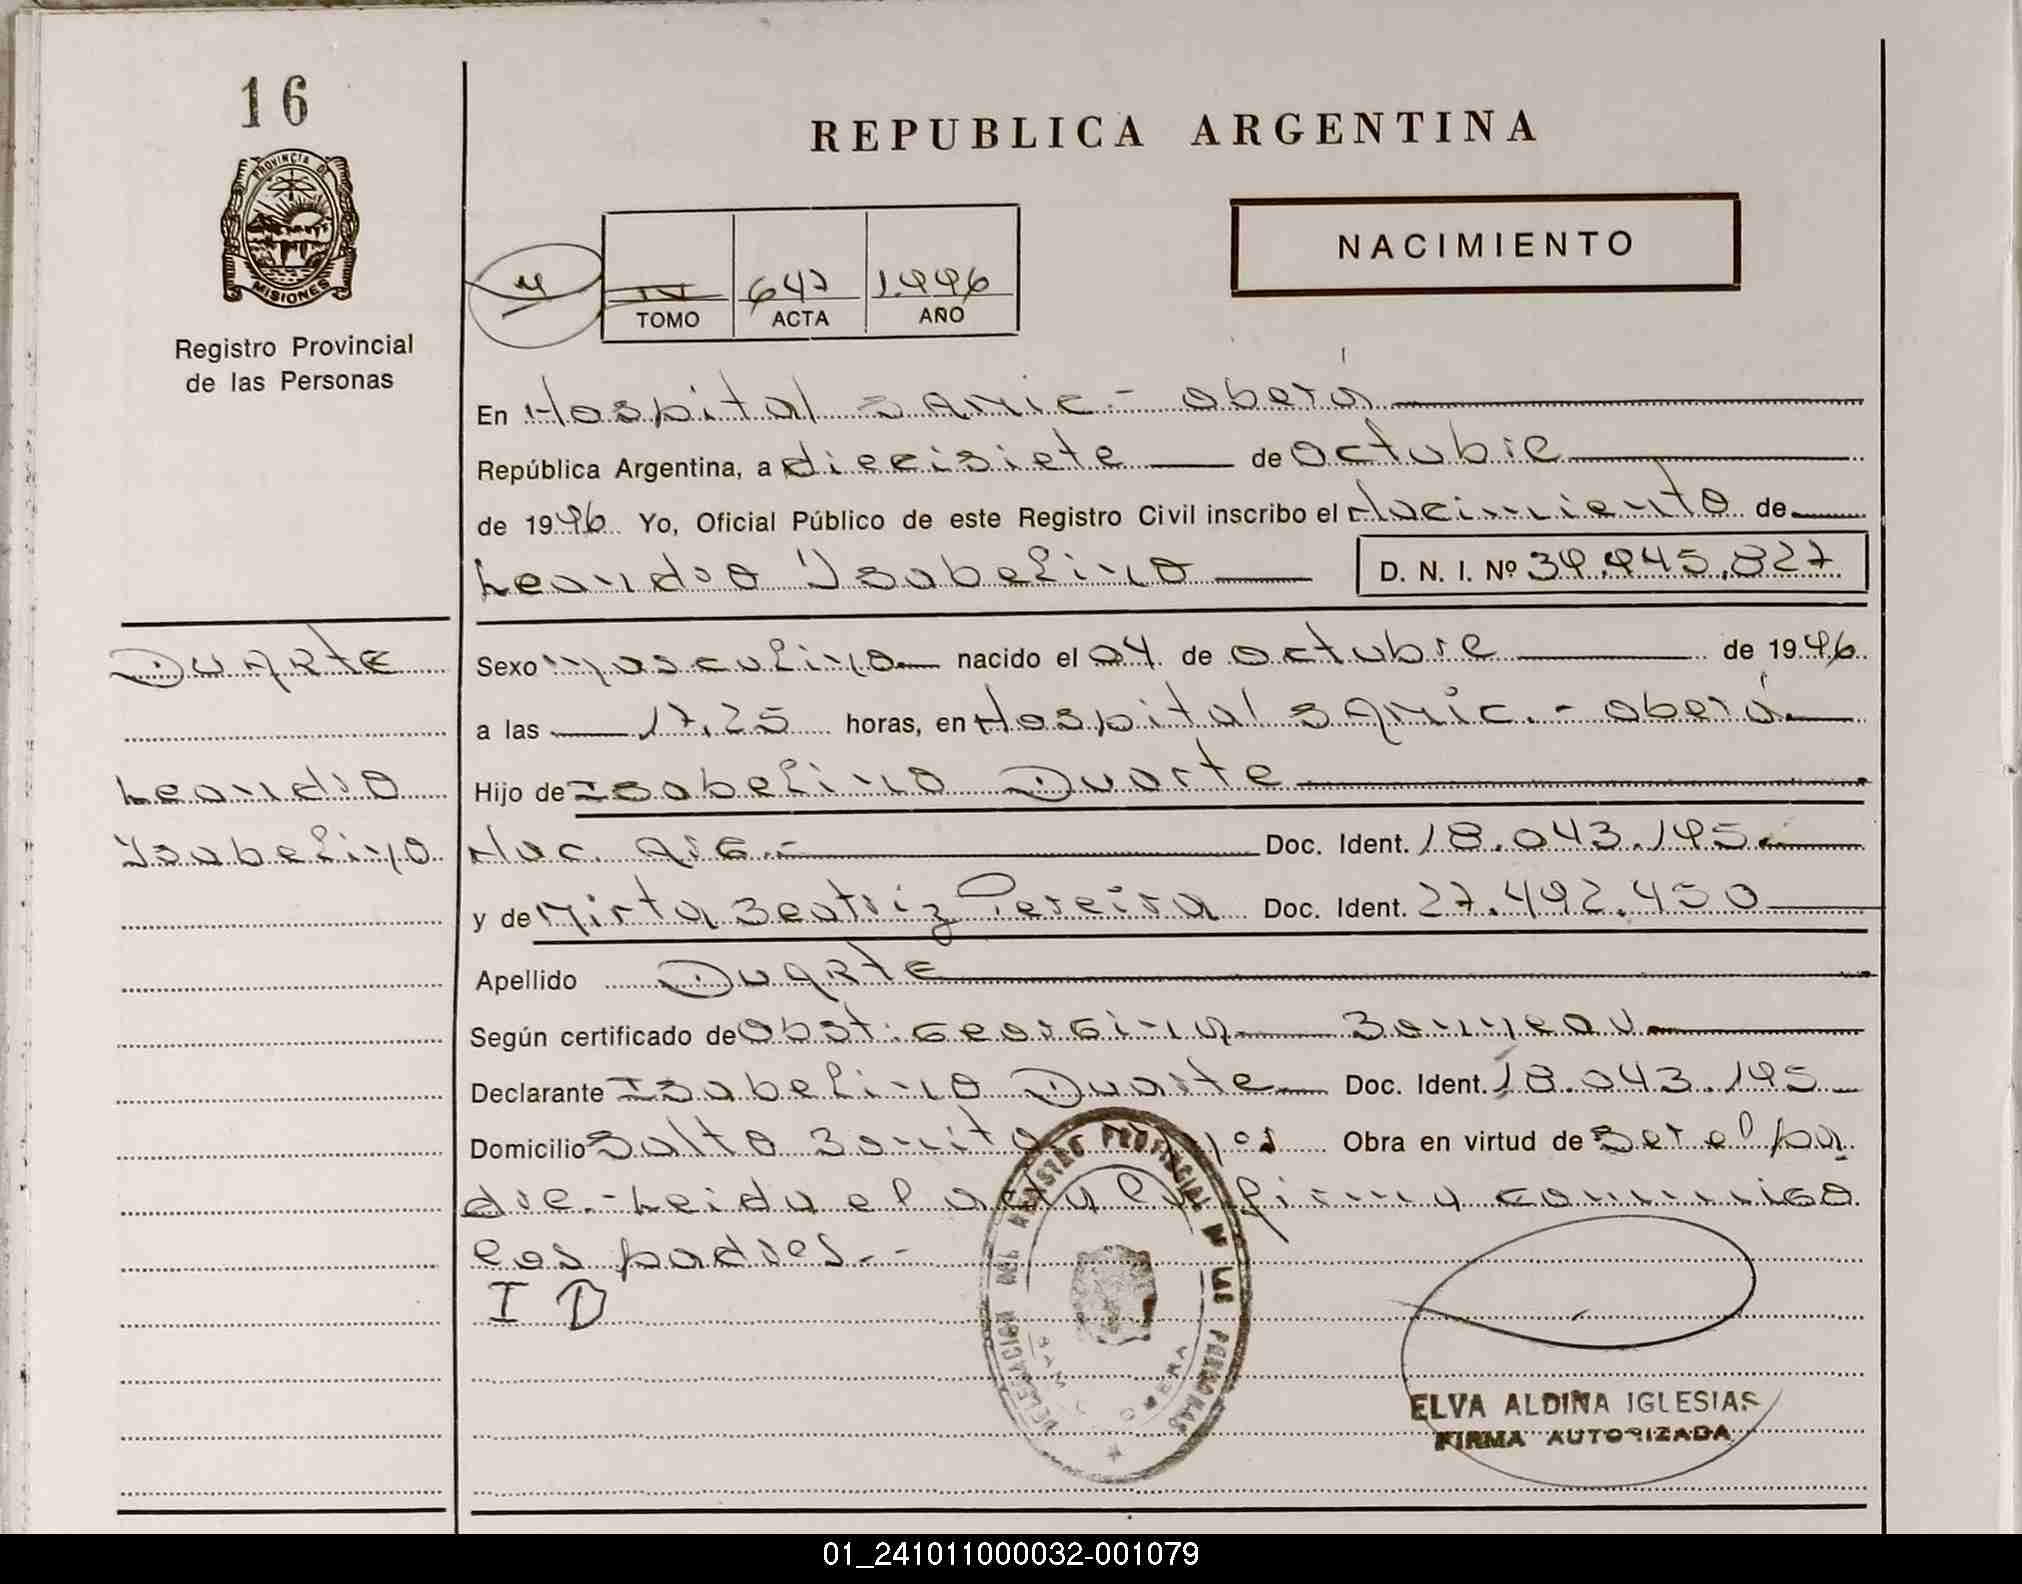 16
PROVINCIA DE
MISIONES
Registro Provincial
de las Personas
REPUBLICA ARGENTINA
NACIMIENTO
IV 647 1.996
TOMO ACTA AÑO
En Hospital SAMIC.- Oberá
República Argentina, a diecisiete de Octubre
de 1996 Yo, Oficial Público de este Registro Civil inscribo el Nacimiento de
Leandro Ysabelino D. N. I. Nº 39.945.827
Duarte
Leandro
Ysabelino
Sexo masculino nacido el 04 de octubre de 1996
a las 17,25 horas, en Hospital SAMIC.- Oberá
Hijo de Isabelino Duarte
Nac. Arg.- Doc. Ident. 18.043.195
y de Mirta Beatriz Pereira Doc. Ident. 27.492.450
Apellido Duarte
Según certificado de Obst. Georgina
Declarante Isabelino Duarte Doc. Ident. 18.043.195
Domicilio Salto Bonito Obra en virtud de ser el pa
dre.- Leida el acta la firma conmigo
los padres.-
I D
DELEGACION DEL REGISTRO PROVINCIAL DE LAS PERSONAS
ELVA ALDINA IGLESIAS
FIRMA AUTORIZADA
01_241011000032-001079